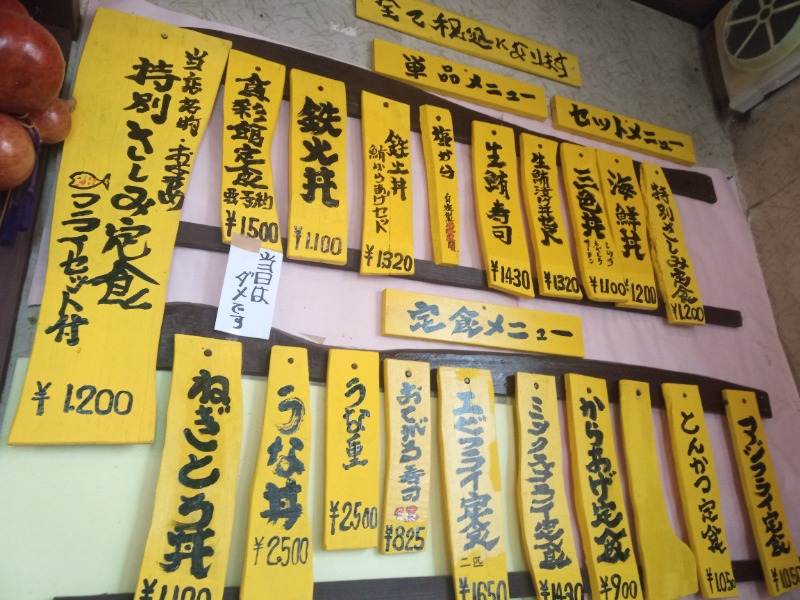 全て税込になります
単品メニュー
セットメニュー
当店名物・お客
特別さしみ定食
フライセット付
¥1200
食彩館定食
要予約
¥1500
当日は
ダメです
鉄火丼
¥1.100
鉄火丼
鮪からあげセット
¥1320
塩から
生鮪寿司
¥1430
生鮪漬け丼
¥1320
三色丼
しらす
サーモン
¥1100
海鮮丼
¥1200
特別さしみ定食
¥1.200
定食メニュー
ねぎとろ丼
¥1100
うな丼
¥2500
うな重
¥2500
おてがる寿司
¥825
エビフライ定食
二匹
¥1650
ミックスフライ定食
¥1430
からあげ定食
¥900
とんかつ定食
¥1.050
アジフライ定食
¥1.050